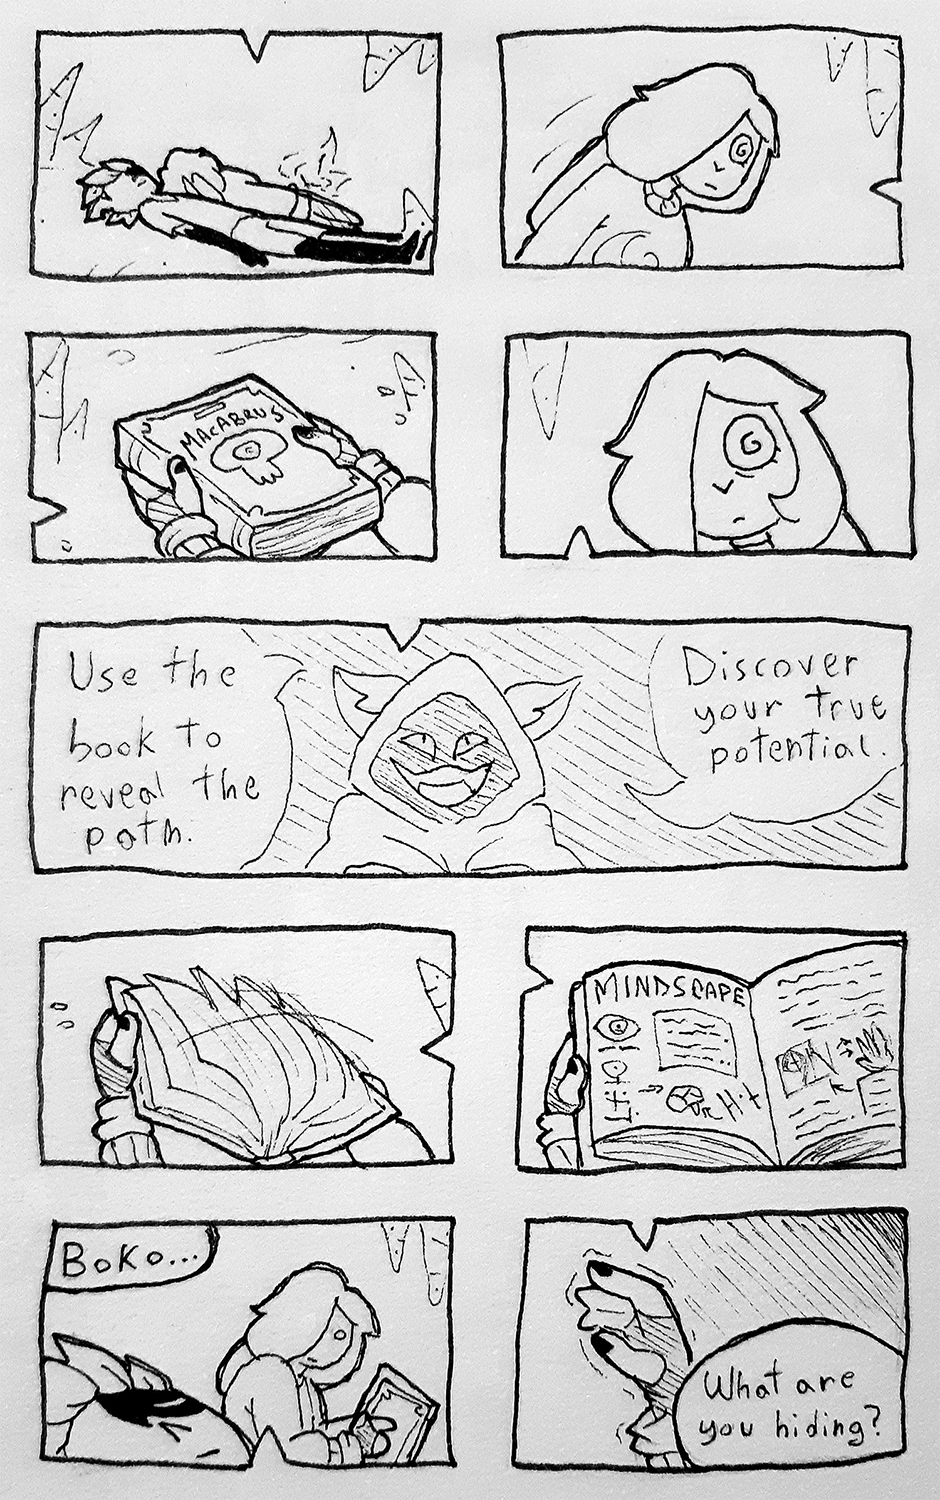 MACABRUS
Use the
book to
reveal the
path.
Discover
your true
potential.
MINDSCAPE
Hit
Boko...
What are
you hiding?